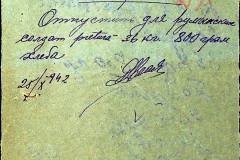 Отпустить для румынских
солдат pretura - 26 кг. 800 грам
хлеба
28/X 942